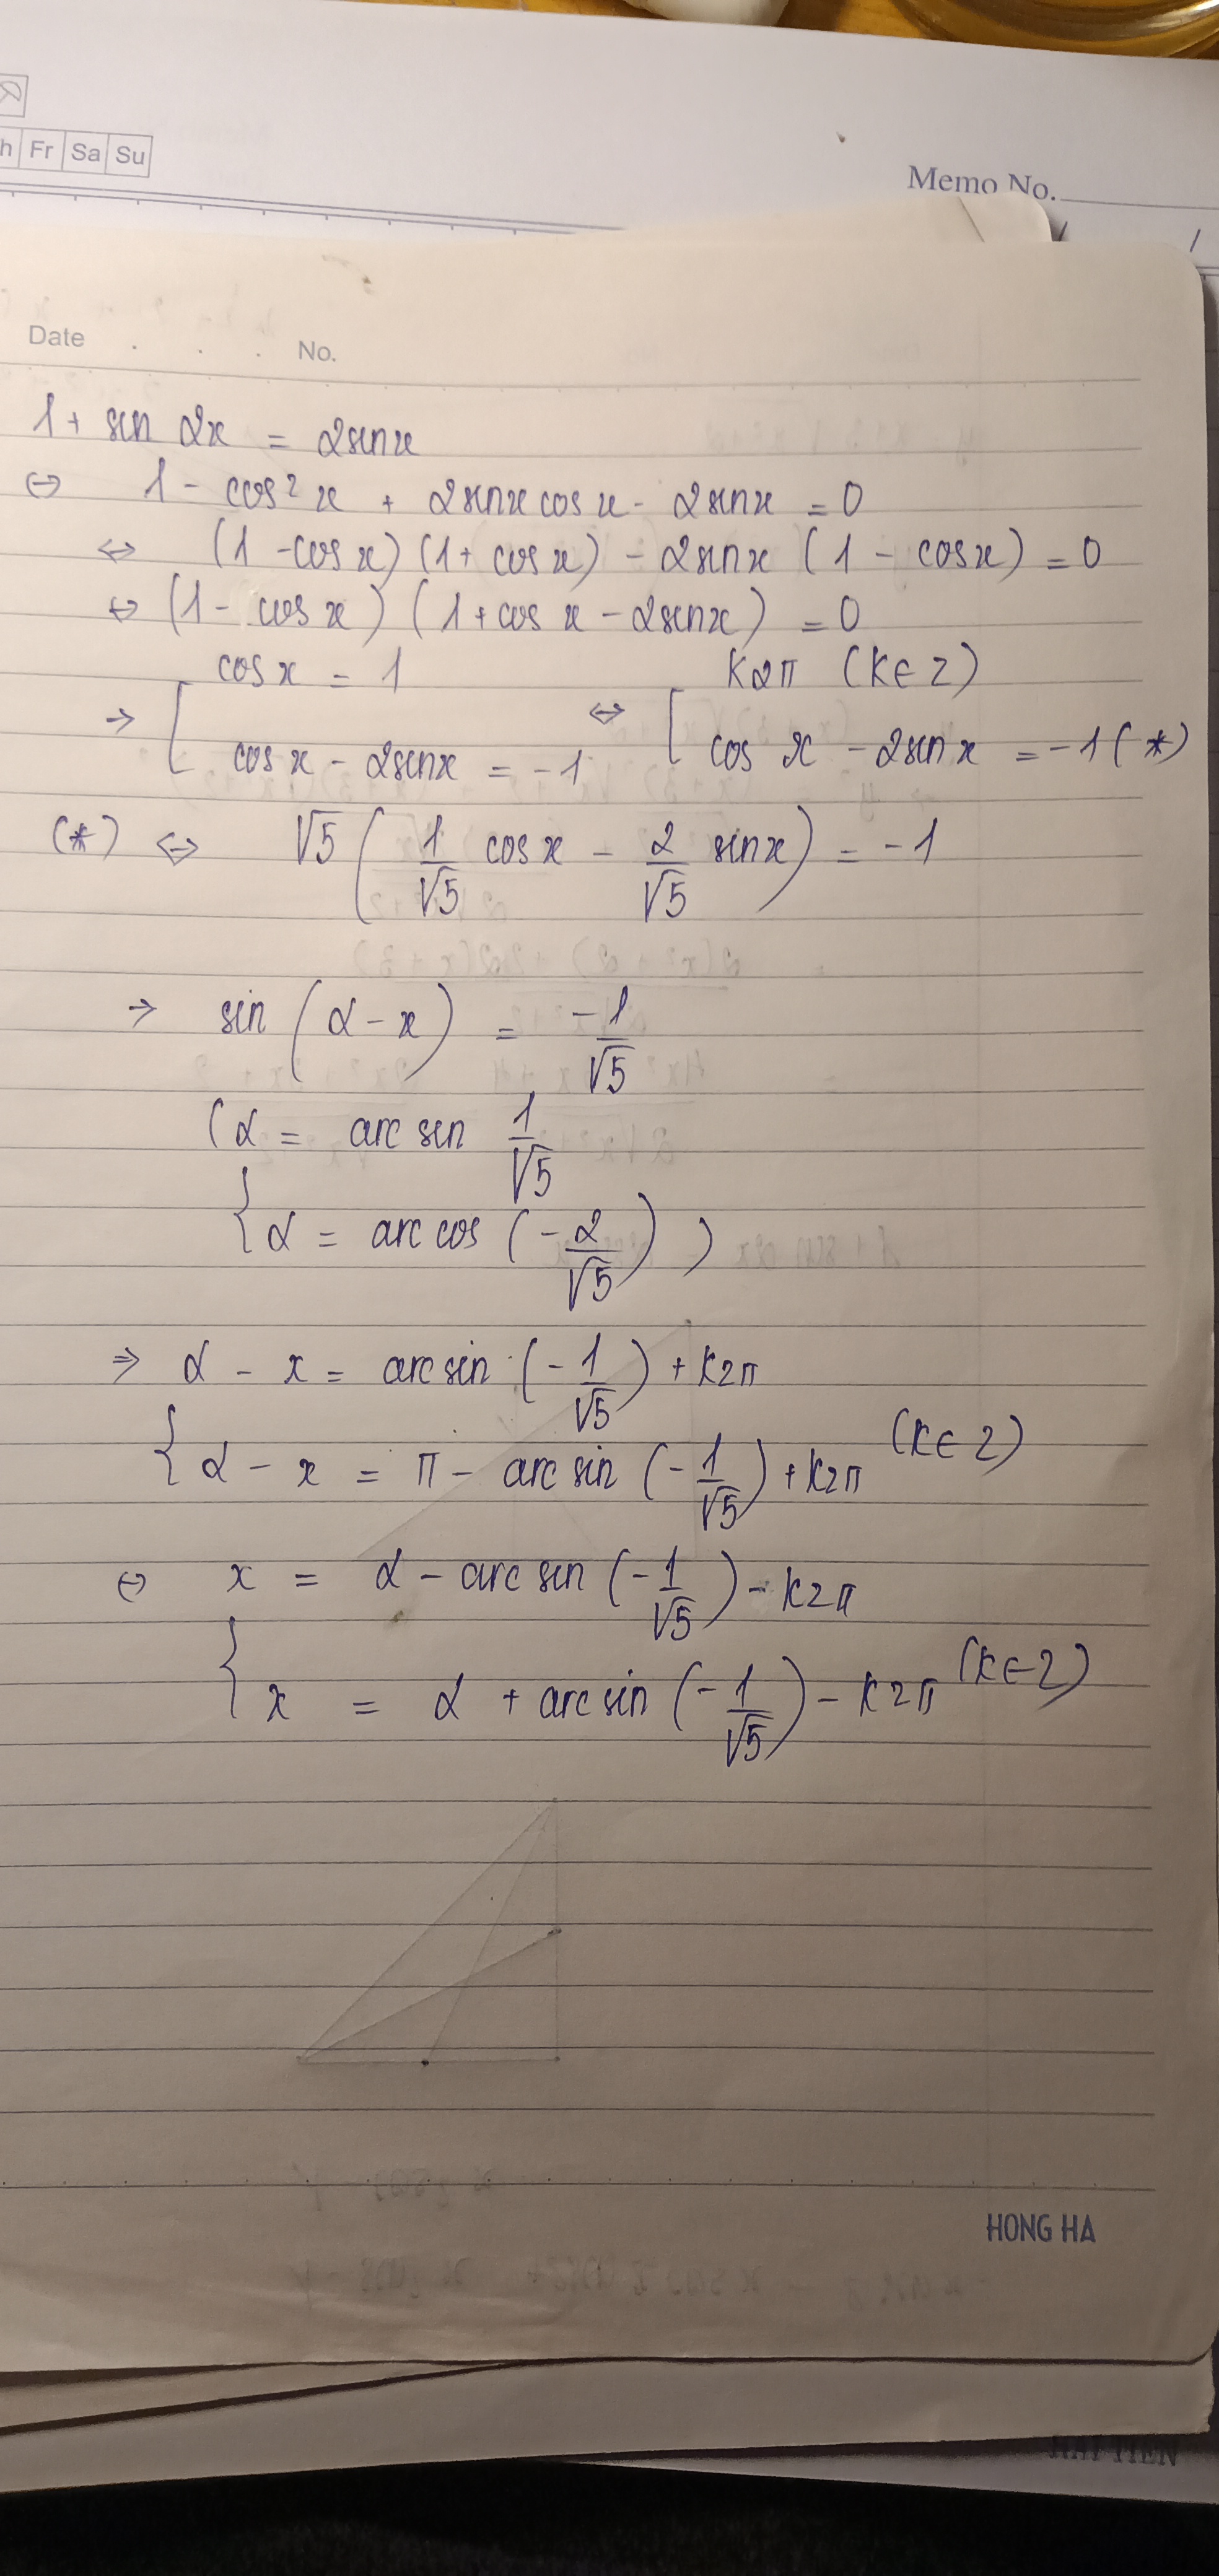 h Fr Sa Su
Memo No.
Date . . . No.
1 + sin 2x = 2sinx
⇔ 1 - cos² x + 2sinx cos x - 2sinx = 0
⇔ (1 - cos x) (1 + cos x) - 2sinx (1 - cosx) = 0
⇔ (1 - cos x) (1 + cos x - 2sinx) = 0
→ [ cos x = 1 ⇔ [ K2π (K∈Z)
cos x - 2sinx = -1 cos x - 2sin x = -1 (*)
(*) ⇔ √5 ( 1/√5 cos x - 2/√5 sinx) = -1
→ sin (α - x) = -1/√5
( { α = arc sin 1/√5
α = arc cos (-2/√5) )
⇒ { α - x = arc sin (-1/√5) + K2π
α - x = π - arc sin (-1/√5) + K2π (K∈Z)
⇔ { x = α - arc sin (-1/√5) - K2π
x = α + arc sin (-1/√5) - K2π (K∈Z)
HONG HA